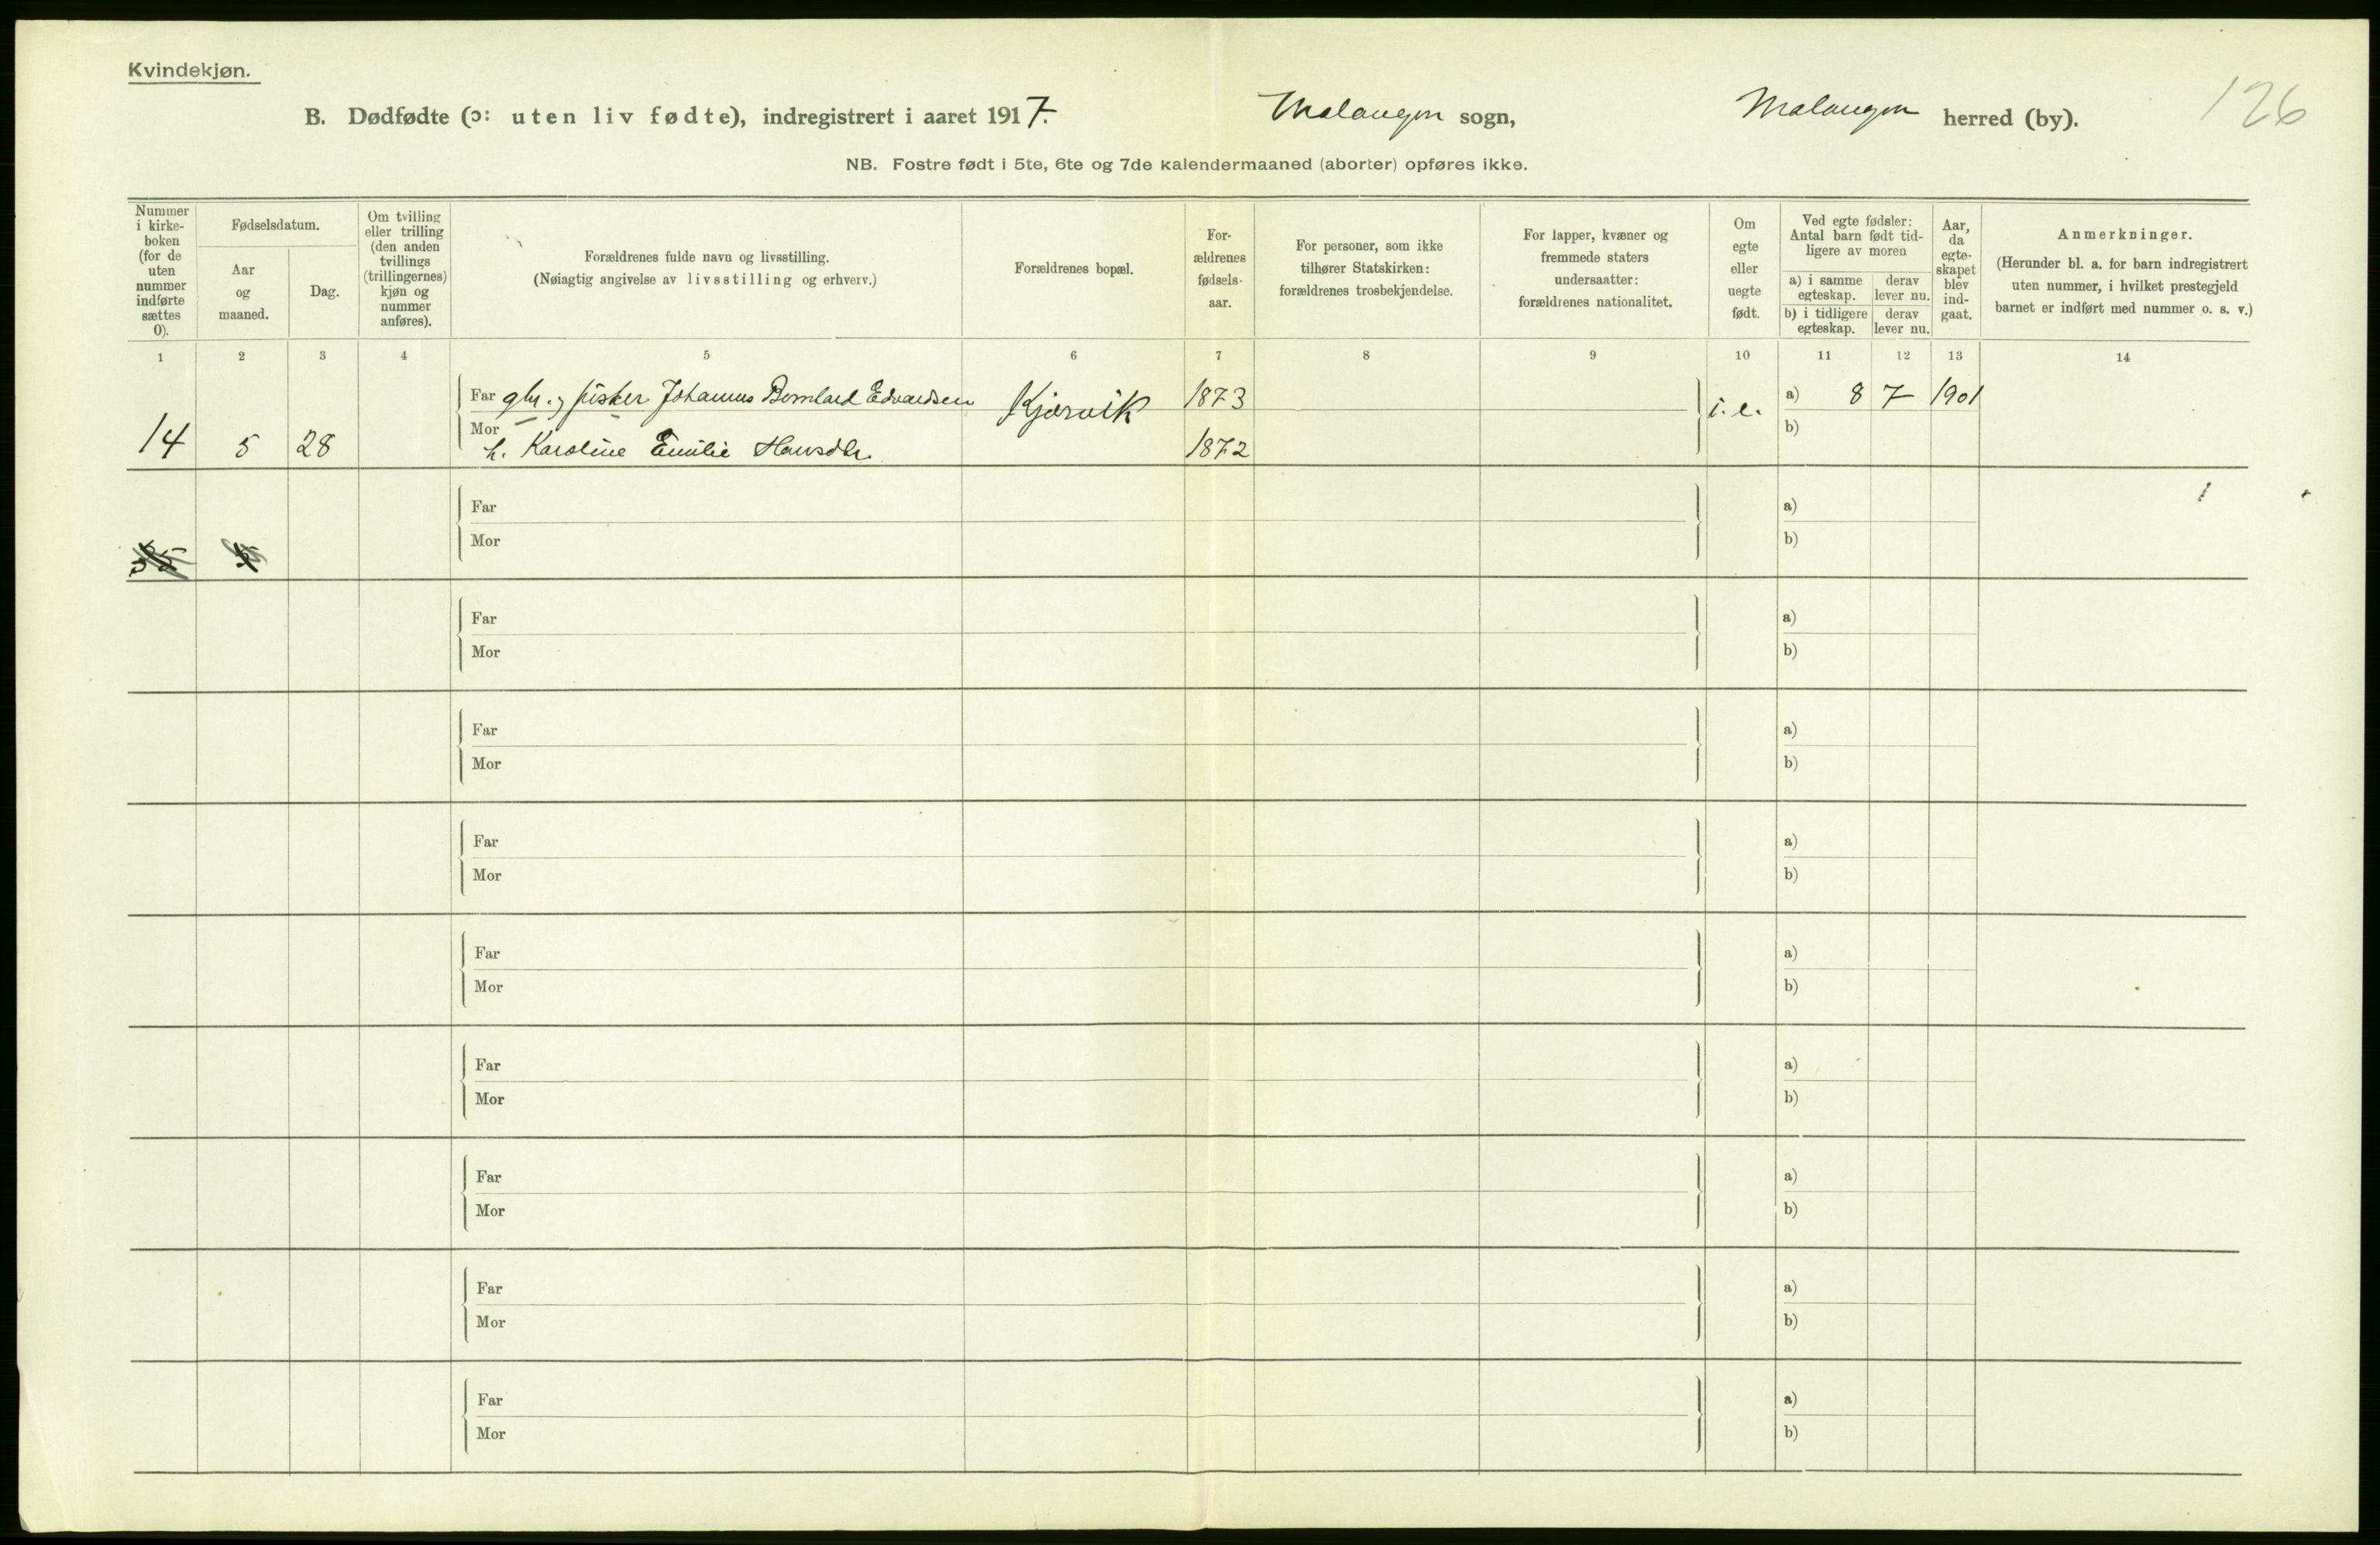 Kvindekjøn.
B. Dødfødte (ɔ: uten liv fødte), indregistrert i aaret 1917. Malangen sogn, Malangen herred (by). 126
NB. Fostre født i 5te, 6te og 7de kalendermaaned (aborter) opføres ikke.
Nummer i kirke-boken (for de uten nummer indførte sættes 0).
Fødselsdatum.
Aar og maaned.
Dag.
Om tvilling eller trilling (den anden tvillings (trillingernes) kjøn og nummer anføres).
Forældrenes fulde navn og livsstilling.
(Nøiagtig angivelse av livsstilling og erhverv.)
Forældrenes bopæl.
For-ældrenes fødsels-aar.
For personer, som ikke tilhører Statskirken: forældrenes trosbekjendelse.
For lapper, kvæner og fremmede staters undersaatter: forældrenes nationalitet.
Om egte eller uegte født.
Ved egte fødsler: Antal barn født tid-ligere av moren
a) i samme egteskap. derav lever nu.
b) i tidligere egteskap. derav lever nu.
Aar, da egte-skapet blev ind-gaat.
Anmerkninger.
(Herunder bl. a. for barn indregistrert uten nummer, i hvilket prestegjeld barnet er indført med nummer o. s. v.)
1 2 3 4 5 6 7 8 9 10 11 12 13 14
Far gbr. og fisker Johannes Bernhard Edvardsen Kjørvik 1873 i.e. a) 8 7 1901
Mor b)
14 5 28 h. Karoline Emilie Hansdtr. 1872
Far a)
Mor b)
Far a)
Mor b)
Far a)
Mor b)
Far a)
Mor b)
Far a)
Mor b)
Far a)
Mor b)
Far a)
Mor b)
Far a)
Mor b)
Far a)
Mor b)